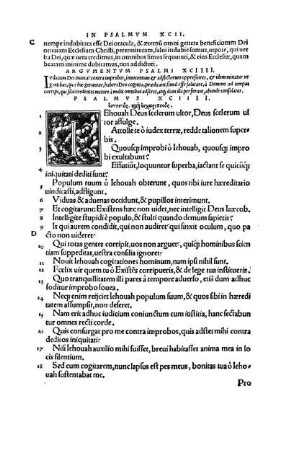 IN PSALMVM XCII.
C nempe indubitas esse Dei oracula, & æternū omni genere beneficiorum Dei
ornatam Ecclesiam Christi, permanturam, hisci indubie simus, utpote, qui ver
ARGVMENTVM PSALMI XCIIII.
PSALMVS XCIIII.
Iehouah Deus scelerum ultor, Deus scelerum ul
tor affulge.
Attolle te ô iudex terræ, redde talionem super
bis.
Quousq; improbi ô Iehouah, quousq; impro
bi exultabunt?
Effutiūt, loquuntur superba, iactant se quicūq;
iniquitati dediti sunt?
5 Populum tuum ô Iehouah obterunt, quos tibi iure hæreditario
uindicasti, affligunt.
6 Viduas & aduenas occidunt, & pupillos interimunt.
7 Et cogitarunt: Existens hæc non uidet, nec intelligit Deus Iaecob.
8 Intelligite stupidi è populo, & stulti quando demum sapietis?
9 Is qui aurem condidit, qui non audiret? qui finxit oculum, quo pa
D cto non uideret?
10 Qui totas gentes corripit, uos non arguet, quiq; hominibus scien
tiam suppeditat, uestra consilia ignoret?
11 Nouit Iehouah cogitationes hominum, nam ipsi nihil sunt.
12 Fœlix uir quem tu ô Existēs corripueris, & de lege tua institueris.
13 Quo tranquillitatem illi pares à tempore aduerso, etsi dum adhuc
foditur improbo fouea.
14 Neq; enim reijciet Iehouah populum suum, & quos sibi in hæredi
tatem assumpsit, non deseret.
15 Nam erit adhuc iudicium coniunctum cum iustitia, hanc sectabun
tur omnes recti corde.
16 Quis consurgat pro me contra improbos, quis adstet mihi contra
deditos iniquitati?
17 Nisi Iehouah auxilio mihi fuisset, breui habitasset anima mea in lo
cis silentium.
18 Sed cum cogitarem, nunc lapsus est pes meus, bonitas tua ô Ieho
uah sustentabat me.
Pro